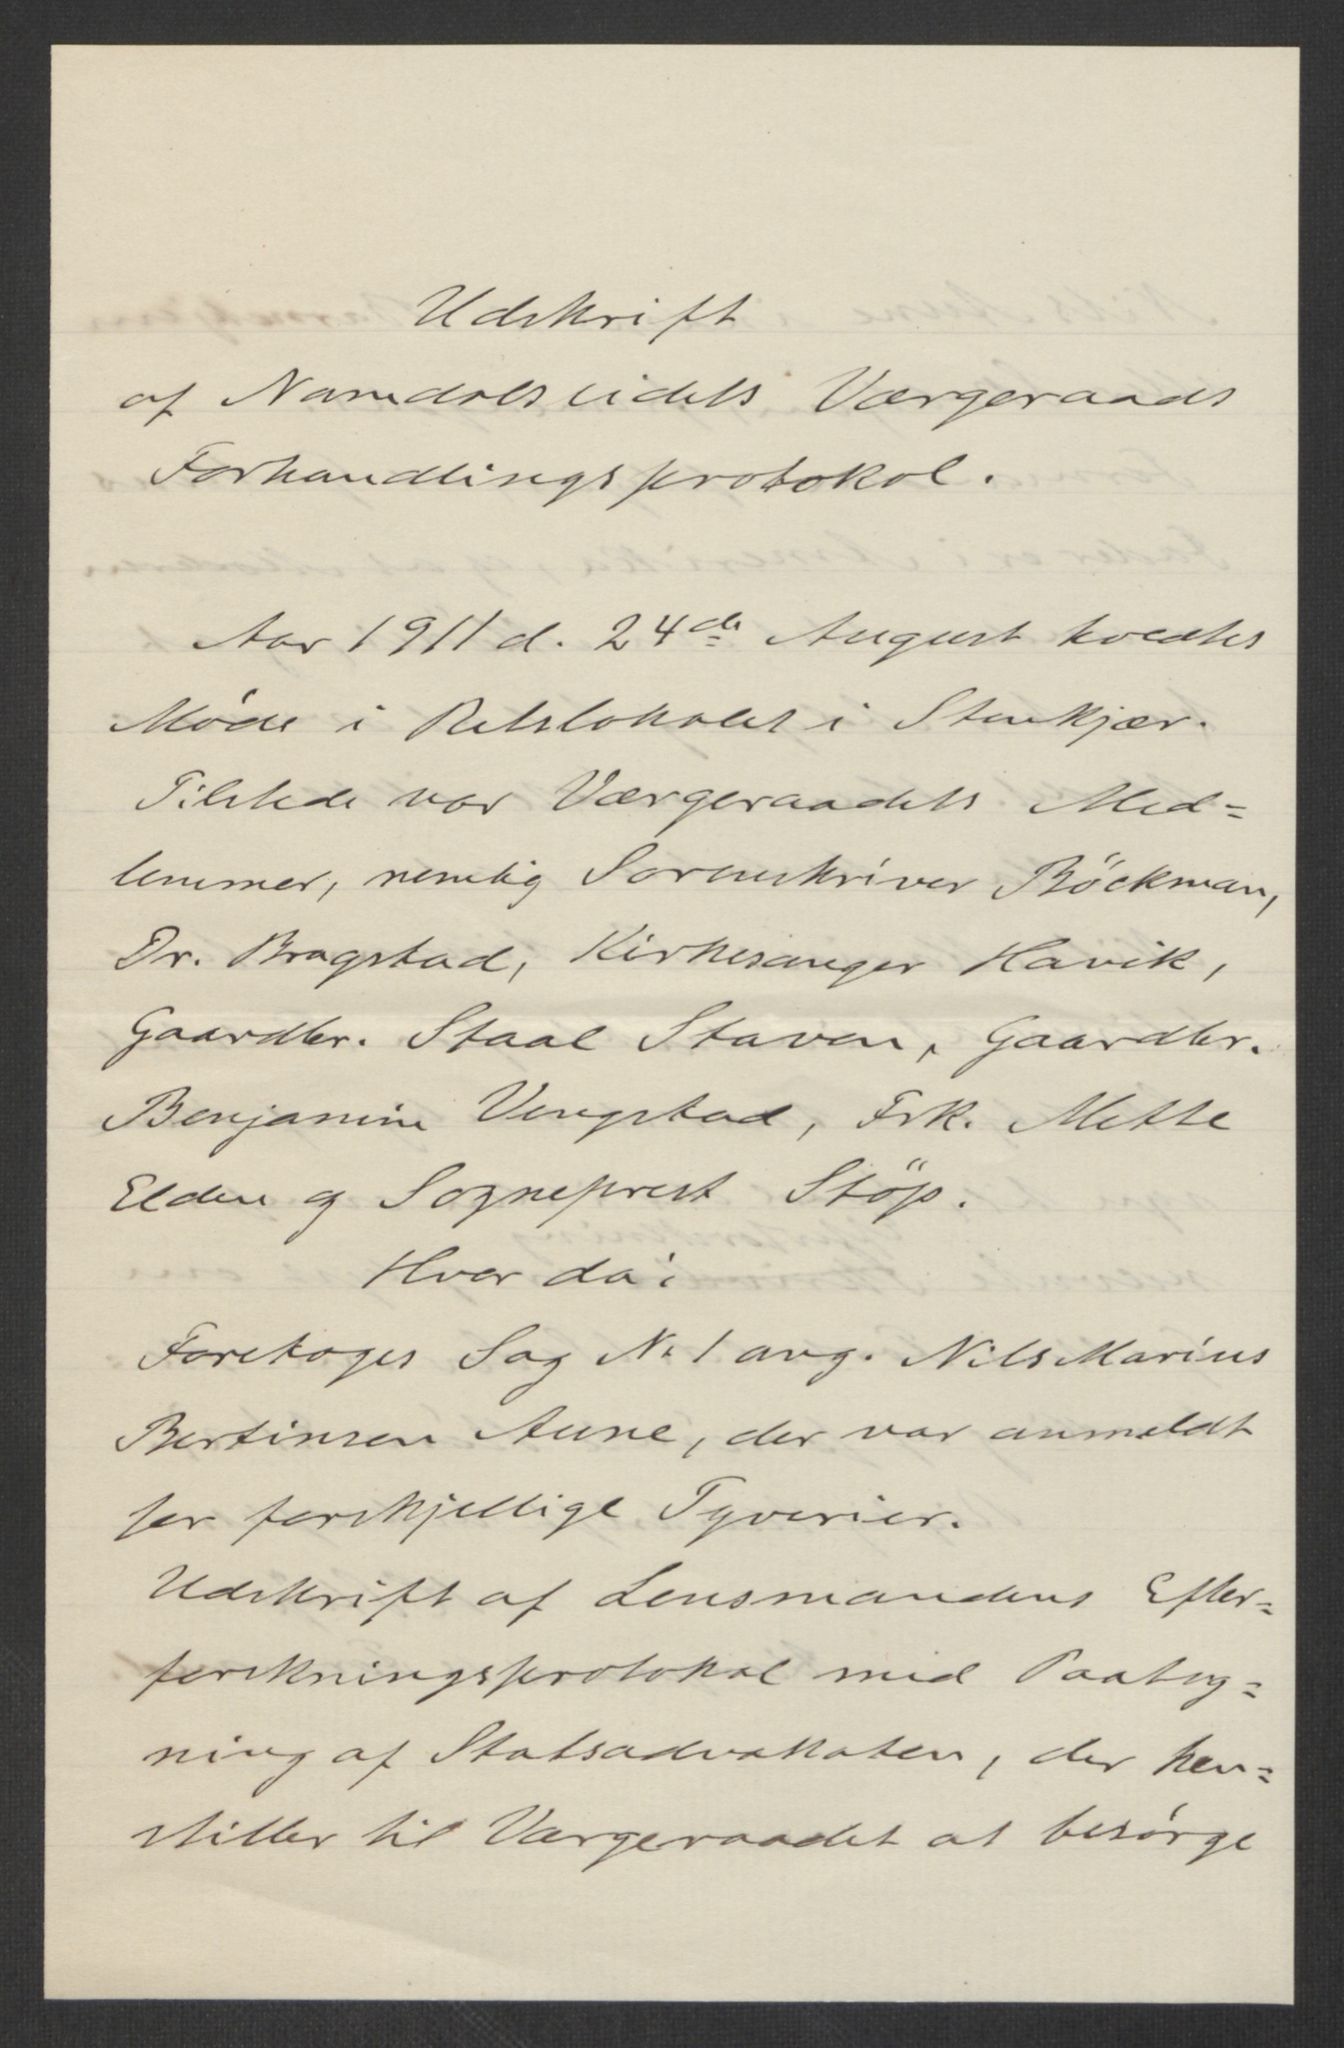 Udskrift
af Namdalseidets Værgeraads
Forhandlingsprotokol.
Aar 1911 d. 24de August holdtes
Møde i Retslokalet i Stenkjær.
Tilstede var Værgeraadets Med=
lemmer, nemlig Sorenskriver Böckman,
Dr. Bragstad, Kirkesanger Havik,
Gaardbr. Staal Staven, Gaardbr.
Benjamin Vengstad, Frk. Mette
Elden og Sogneprest Stöp.
Hvor da:
Foretoges Sag No 1 ang. Nils Marius
Bertinsen Aune, der var anmeldt
for forskjellige Tyverier.
Udskrift af Lensmandens Efter=
forskningsprotokol med Paateg=
ning af Statsadvokaten, der hen=
stiller til Værgeraadet at besørge